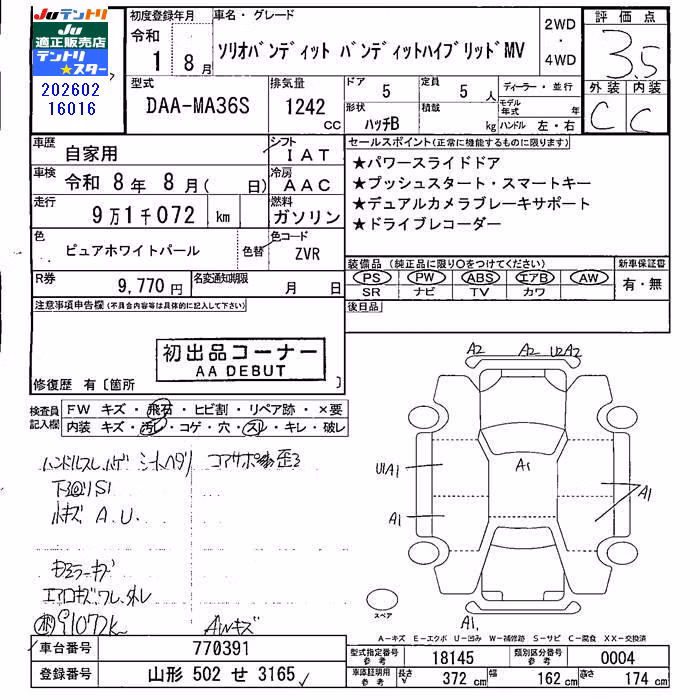 JUテントリ
JU
適正販売店
テントリ
★スター
202602
16016
初度登録年月 令和 1 8月
車名・グレード
ソリオバンディット バンディットハイブリッドMV
2WD・4WD
評価点
3.5
外装 内装
C C
型式 DAA-MA36S
排気量 1242 cc
ドア 5
定員 5 人
形状 ハッチB
積載 kg
ディーラー・並行
モデル年式 年
ハンドル 左・右
車歴 自家用
シフト IAT
車検 令和 8年 8月( 日)
冷房 AAC
走行 9万1千072 km
燃料 ガソリン
色 ピュアホワイトパール
色替
色コード ZVR
R券 9,770円
名変通知期限 月 日
セールスポイント(正常に機能するものに限ります)
★パワースライドドア
★プッシュスタート・スマートキー
★デュアルカメラブレーキサポート
★ドライブレコーダー
装備品 (純正品に限り○をつけてください)
新車保証書
PS PW ABS エアB AW
SR ナビ TV カワ
有・無
後日品
注意事項申告欄(不具合内容等は具体的に記入して下さい)
初出品コーナー
AA DEBUT
修復歴 有〔箇所 〕
検査員記入欄
FW キズ・飛石・ヒビ割・リペア跡・×要
内装 キズ・汚レ・コゲ・穴・スレ・キレ・破レ
ハンドルスレ、ハゲ シートヘタリ コアサポ歪ミ
下回りS1
小キズ A.U.
左ミラーキズ
エアロキズ、ワレ、外レ
91072k
AWキズ
A2 A2 U2A2
U1A1
A1
A1
A1
A1
スペア
A-キズ E-エクボ U-凹み W-補修跡 S-サビ C-腐食 XX-交換済
車台番号 770391
登録番号 山形 502 せ 3165
型式指定番号 参考 18145
類別区分番号 参考 0004
車庫証明用 参考 長さ 372 cm 幅 162 cm 高さ 174 cm